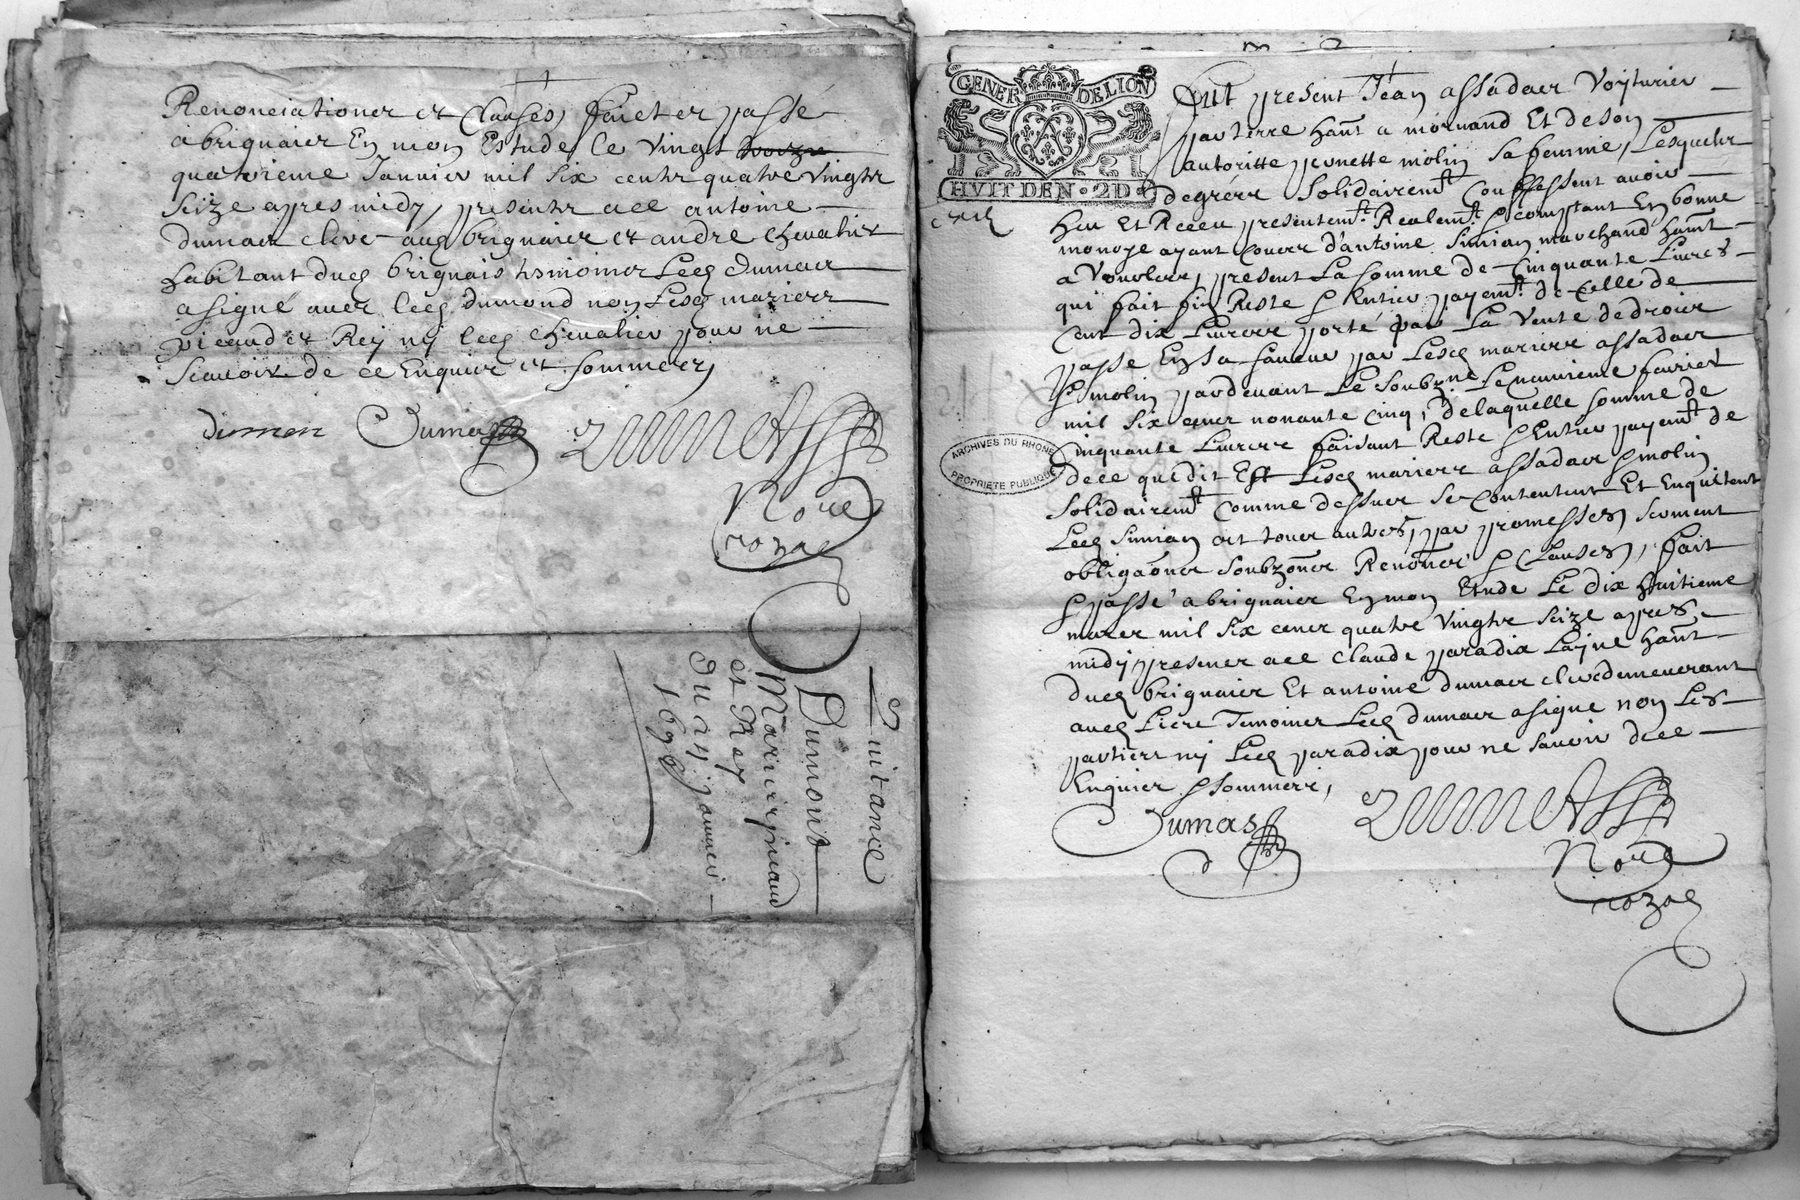 Renonciationer et Clauses, faict et passé
a briguaier En mon Estude le vingt
quatorieme Janvier mil six centz quatre vingtz
seize apres midy, presentz ace antoine
dumaer clerc aud briguaier et andre chevalier
habitant dud briguais tesmoiner Led dumaer
a signé avec led dumond non Lesd marierz
picaud et Rey ny led chevalier pour ne
scavoir de ce Enquier et sommer,
dumon Dumas
Nore
rozae
Quitance
Dumont
Marier picaud
et Rey
Du 24 janvier
1696
GENER DELION
HVIT DEN . 2D
Fut present Jean assadaer Voyturier
par terre hant a mornand Et de son
autoritte pernette molin sa femme, Lesquelz
degrerz Solidairemt Confessent avoir
heu Et Receu presentemt Realemt & comptant En bonne
monoye ayant Courz d'antoine simian marchand hant
a Vourler, present La somme de Cinquante Livres
qui fait fin Reste & Entier payemt de Celle de
Cent dix Livrer porté par La Vente de droier
passe En sa faveur par Lesd marierz assadaer
& molin pardevant Le soubzné Le neuvieme favrier
mil six cener nonante cinq, de laquelle somme de
Cinquante Livrer faisant Reste & Entier payemt de
dece que dit Est Lesd marierz assadaer & molin
Solidairemt Comme dessuer se Contentent Et Enquitent
Led simian et touer autres, par promesses, serment
obligaoner soubzoner Renoner & Clauses, fait
& passé a briguaier En mon Etude Le dix huitieme
marer mil six cener quatre vingtz seize apres
midy presener ace Claude paradix Layné hant
dud briguaier Et antoine dumaer clerc demeurant
aud Liere Temoiner Led dumaer a signe non Les
partiers ny Led paradix pour ne savoir dece
Enquier & sommerz,
Dumas
Nore
rozae
ARCHIVES DU RHONE
PROPRIETE PUBLIQUE